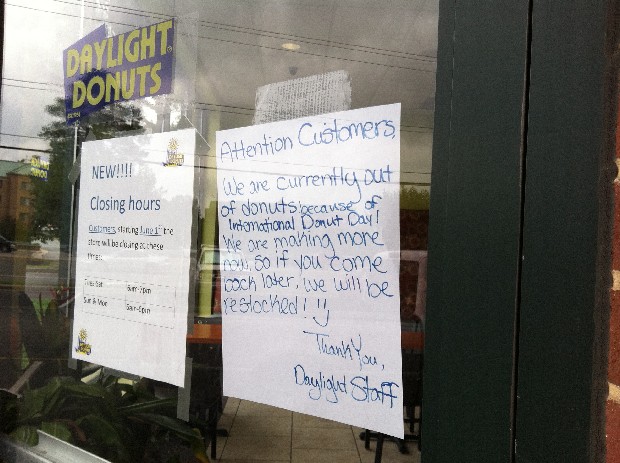 DAYLIGHT
DONUTS
NEW!!!!
Closing hours
Customers, starting June 1st the
store will be closing at these
times:
Tues-Sat 6am-7pm
Sun & Mon 6am-6pm
Attention Customers,
We are currently out
of donuts because of
International Donut Day!
We are making more
now, so if you come
back later, we will be
restocked! :)
Thank You,
Daylight Staff